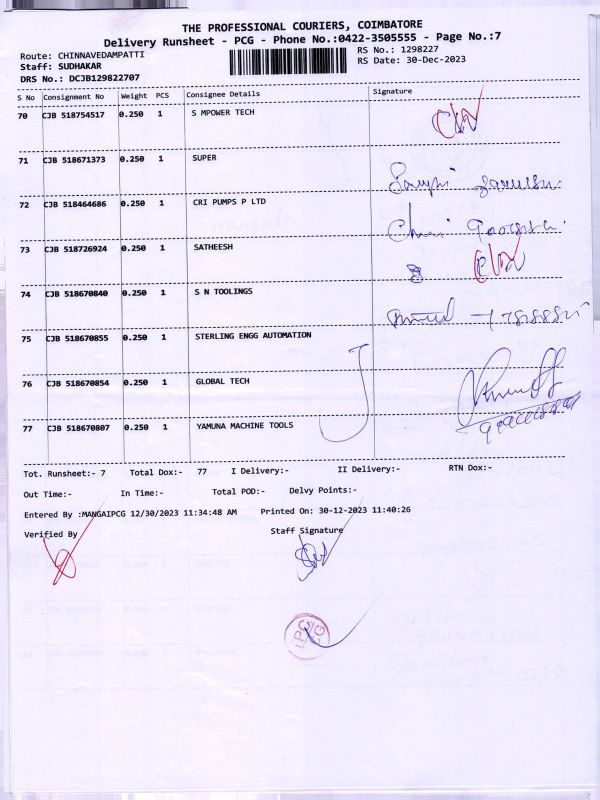 THE PROFESSIONAL COURIERS, COIMBATORE
Delivery Runsheet - PCG - Phone No.:0422-3505555 - Page No.:7
Route: CHINNAVEDAMPATTI RS No.: 1298227
Staff: SUDHAKAR RS Date: 30-Dec-2023
DRS No.: DCJB129822707
S No Consignment No Weight PCS Consignee Details Signature
70 CJB 518754517 0.250 1 S MPOWER TECH
71 CJB 518671373 0.250 1 SUPER
72 CJB 518464686 0.250 1 CRI PUMPS P LTD
73 CJB 518726924 0.250 1 SATHEESH
74 CJB 518670840 0.250 1 S N TOOLINGS
75 CJB 518670855 0.250 1 STERLING ENGG AUTOMATION
76 CJB 518670854 0.250 1 GLOBAL TECH
77 CJB 518670807 0.250 1 YAMUNA MACHINE TOOLS
Tot. Runsheet:- 7 Total Dox:- 77 I Delivery:- II Delivery:- RTN Dox:-
Out Time:- In Time:- Total POD:- Delvy Points:-
Entered By :MANGAIPCG 12/30/2023 11:34:48 AM Printed On: 30-12-2023 11:40:26
Verified By Staff Signature